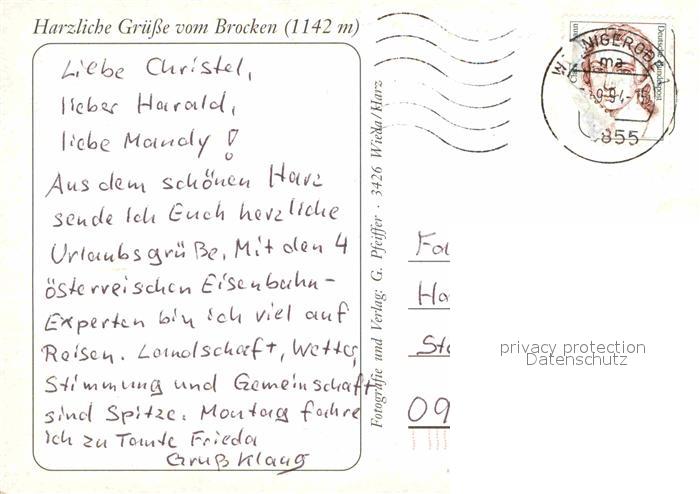 Harzliche Grüße vom Brocken (1142 m)
Liebe Christel,
lieber Harald,
liebe Mandy!
Aus dem schönen Harz
sende ich Euch herzliche
Urlaubsgrüße. Mit den 4
österreischen Eisenbahn-
Experten bin ich viel auf
Reisen. Landschaft, Wetter,
Stimmung und Gemeinschaft
sind Spitze. Montag fahre
ich zu Tante Frieda
Gruß Klaus
Fotografie und Verlag: G. Pfeiffer · 3426 Wieda/Harz
Deutsche Bundespost
ma
855
Fa
Ha
Sto
09
privacy protection
Datenschutz